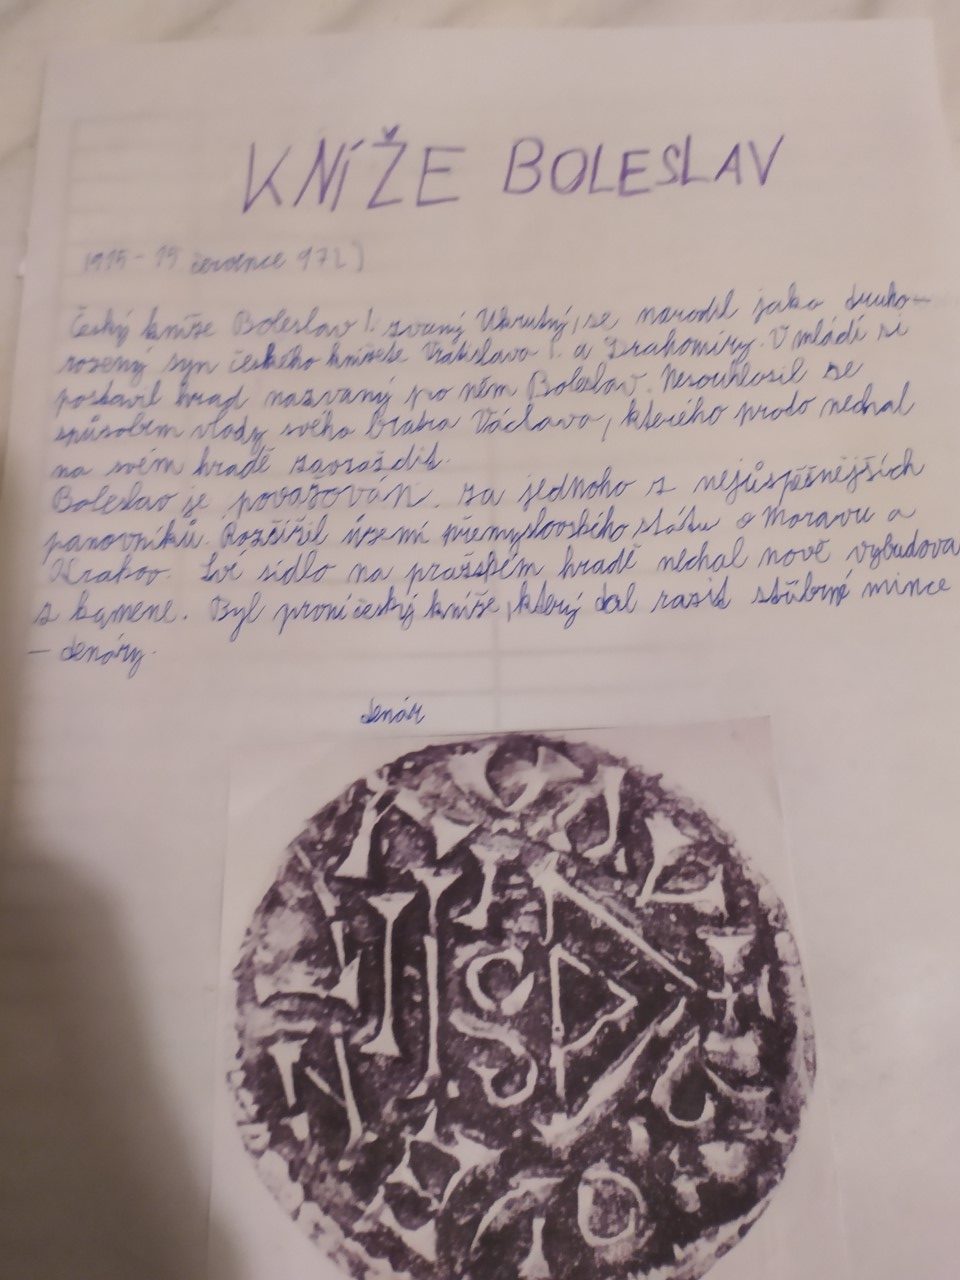 KNÍŽE BOLESLAV
1915 - 15 července 972)
Český kníže Boleslav I. zvaný Ukrutný, se narodil jako druho-
rozený syn českého knížete Vratislava I. a Drahomíry. V mládí si
postavil hrad nazvaný po něm Boleslav. Nesouhlasil se
způsobem vlády svého bratra Václava, kterého proto nechal
na svém hradě zavraždit.
Boleslav je považován za jednoho z nejúspěšnějších
panovníků. Rozšířil území přemyslovského státu o Moravu a
Krakov. Své sídlo na pražském hradě nechal nově vybudova
z kamene. Byl první český kníže, který dal razit stříbrné mince
- denáry.
denár